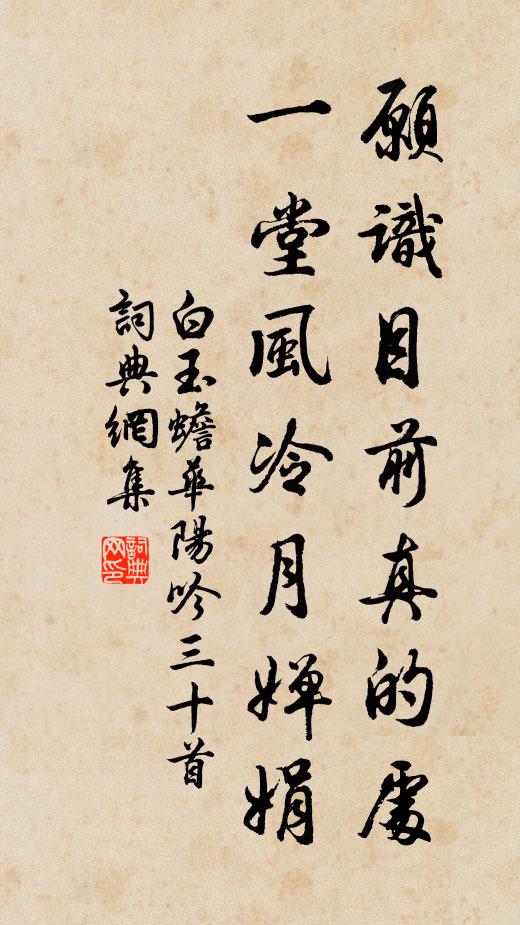 願識目前真的處
一堂風冷月嬋娟
白玉蟾華陽吟三十首
詞典網集
詞典網印